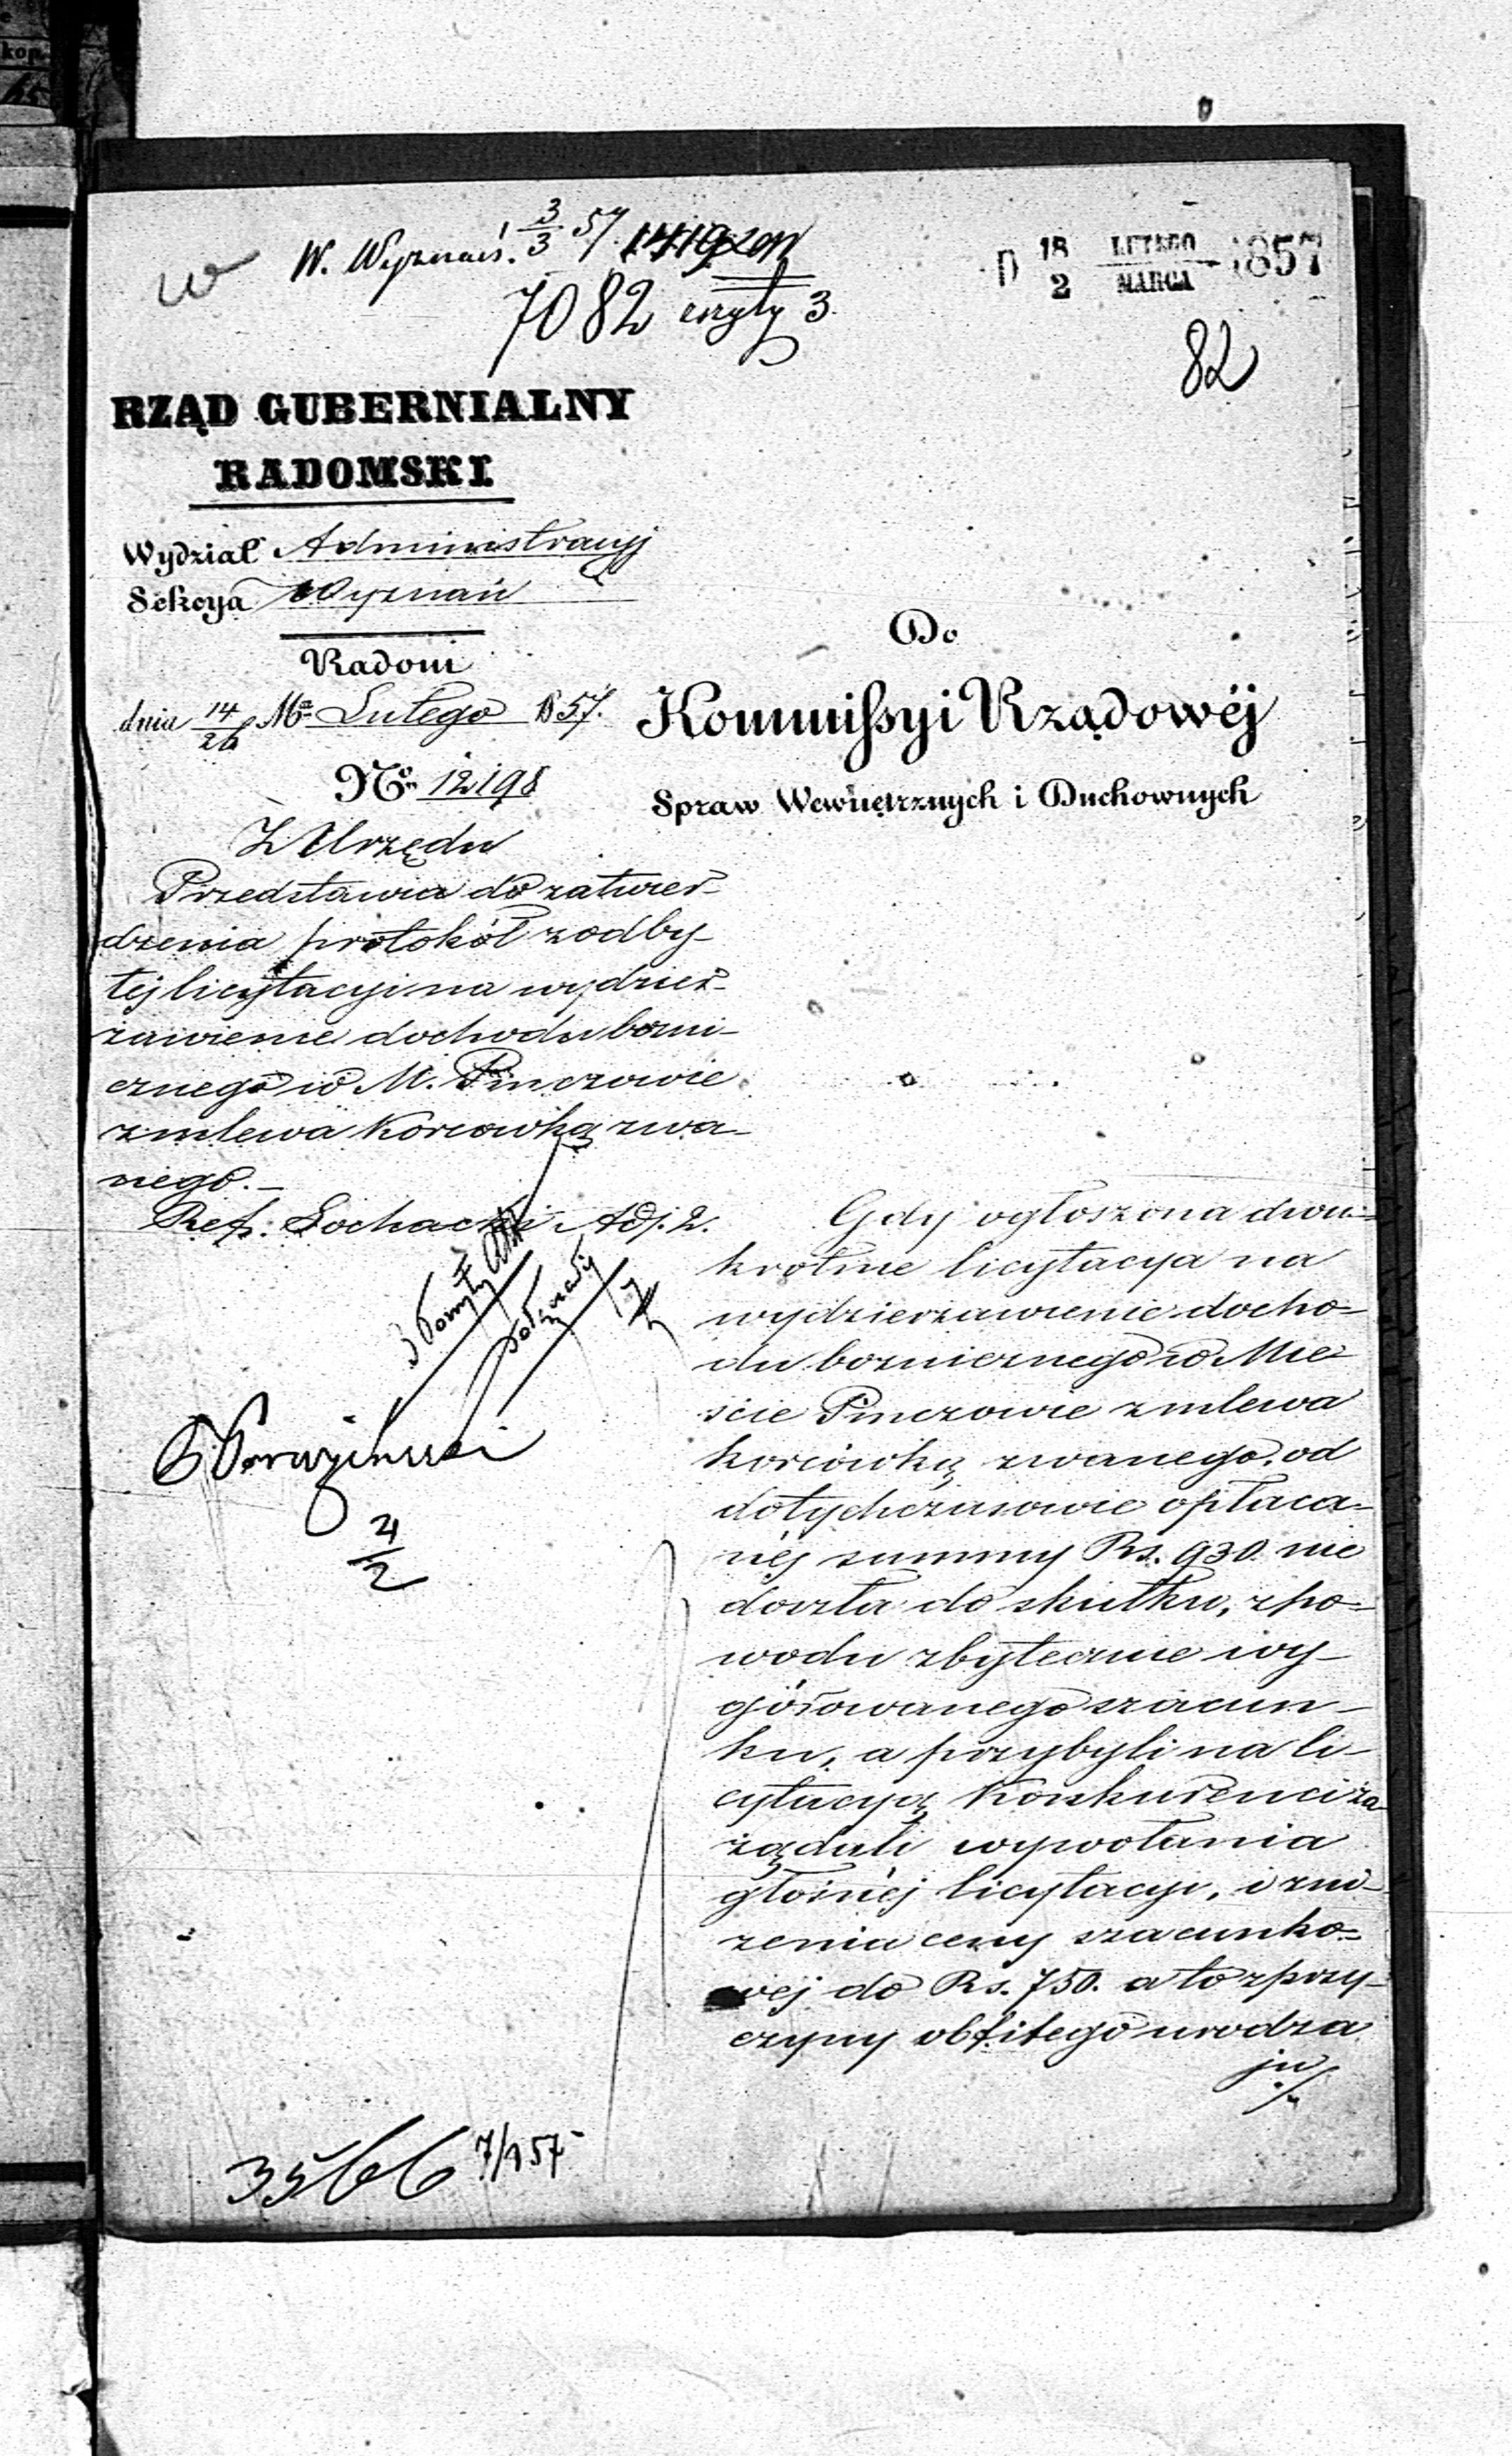 kop
W. Wyznań. 3/3 57.
7082 3.
D 18 LUTEGO 1857
2 MARCA
82
RZĄD GUBERNIALNY
RADOMSKI.
Wydział Administracyj
Sekcya Wyznań
Radom
dnia 14/26 Ma Lutego 1857.
No 12198
Z Urzędu
Przedstawia do zatwier-
dzenia protokół z odby-
tej licytacyi na wydzier-
żawienie dochodu bożni-
cznego w M. Pinczowie
z mlewa korcówką zwa-
nego.-
Ref: Lochacki Adj. 2.
Do
Kommissyi Rządowéj
Spraw Wewnętrznych i Duchownych
Gdy ogłoszona dwu=
krotnie licytacya na
wydzierżawienie docho=
du bożnicznego w Mie-
ście Pinczowie z mlewa
korcówką zwanego, od
dotychczasowie opłaca=
néj summy Rs. 930. nie
doszła do skutku, z po=
wodu zbytecznie wy-
górowanego szacun-
ku, a przybyli na li-
cytacyą Konkurenci za-
żądali wywołania
głośnéj licytacyi, i zni-
żenia ceny szacunko=
wej do Rs. 750. a to z przy-
czyny obfitego urodza
ju
4/2
3566 7/1 57